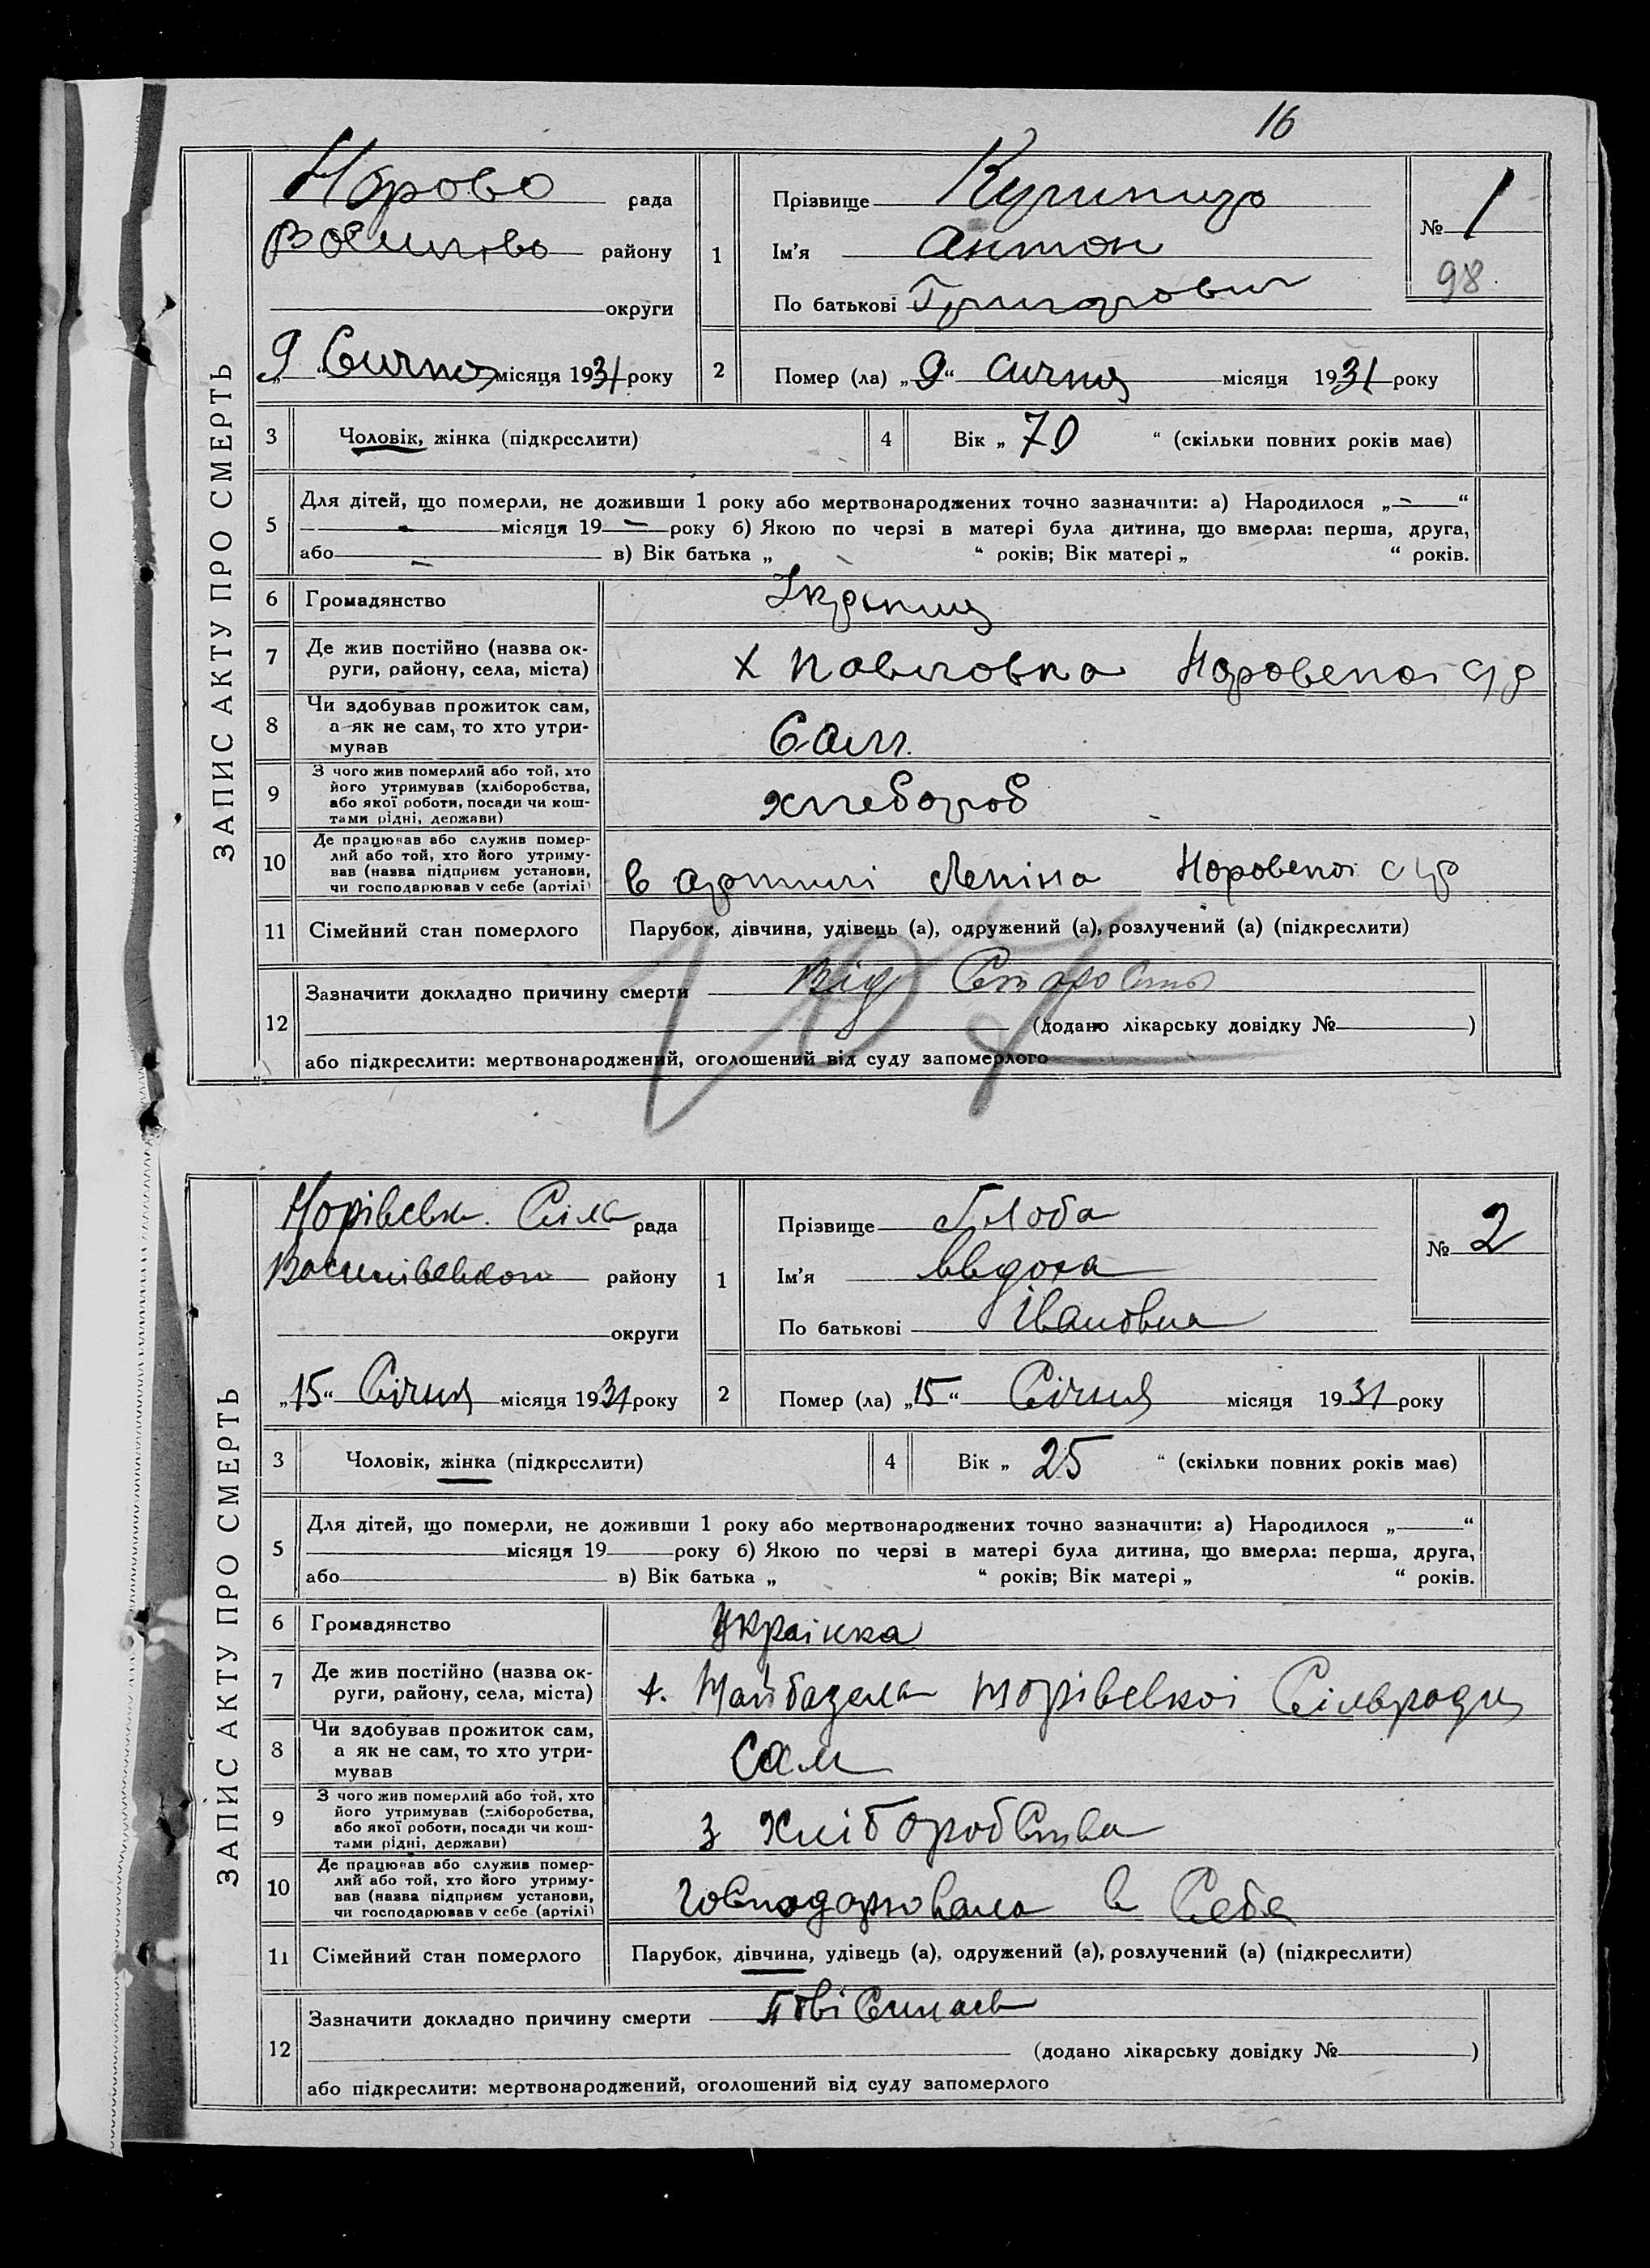 16
ЗАПИС АКТУ ПРО СМЕРТЬ
рада
району
округи
9 Сичня місяця 1931 року
1
Прізвище
Ім'я Антон
По батькові Григорович
№ 1
98
2
Помер (ла) „9“ сичня місяця 1931 року
3
Чоловік, жінка (підкреслити)
4
Вік „ 70 “ (скільки повних років має)
5
Для дітей, що померли, не доживши 1 року або мертвонароджених точно зазначити: а) Народилося „—“
місяця 19— року б) Якою по черзі в матері була дитина, що вмерла: перша, друга,
або — в) Вік батька „ “ років; Вік матері „ “ років.
6
Громадянство
7
Де жив постійно (назва ок-
руги, району, села, міста)
х Павловка
8
Чи здобував прожиток сам,
а як не сам, то хто утри-
мував
Сам.
9
З чого жив померлий або той, хто
його утримував (хліборобства,
або якої роботи, посади чи кош-
тами рідні, держави)
хлебороб
10
Де працював або служив помер-
лий або той, хто його утриму-
вав (назва підприєм установи,
чи господарював у себе (артілі)
в артилі Леніна
11
Сімейний стан померлого
Парубок, дівчина, удівець (а), одружений (а), розлучений (а) (підкреслити)
107
12
Зазначити докладно причину смерти Від Старости
(додано лікарську довідку № )
або підкреслити: мертвонароджений, оголошений від суду запомерлого
ЗАПИС АКТУ ПРО СМЕРТЬ
рада
Василівського району
округи
„15“ Січня місяця 1931 року
1
Прізвище Глоба
Ім'я Явдоха
По батькові Івановна
№ 2
2
Помер (ла) „15“ Січня місяця 1931 року
3
Чоловік, жінка (підкреслити)
4
Вік „ 25 “ (скільки повних років має)
5
Для дітей, що померли, не доживши 1 року або мертвонароджених точно зазначити: а) Народилося „ “
місяця 19 року б) Якою по черзі в матері була дитина, що вмерла: перша, друга,
або в) Вік батька „ “ років; Вік матері „ “ років.
6
Громадянство
Українка
7
Де жив постійно (назва ок-
руги, району, села, міста)
х. Сільради
8
Чи здобував прожиток сам,
а як не сам, то хто утри-
мував
Сам
9
З чого жив померлий або той, хто
його утримував (хліборобства,
або якої роботи, посади чи кош-
тами рідні, держави)
з Хліборобства
10
Де працював або служив помер-
лий або той, хто його утриму-
вав (назва підприєм установи,
чи господарював у себе (артілі)
Господарювала в Себе
11
Сімейний стан померлого
Парубок, дівчина, удівець (а), одружений (а), розлучений (а) (підкреслити)
12
Зазначити докладно причину смерти
(додано лікарську довідку № )
або підкреслити: мертвонароджений, оголошений від суду запомерлого